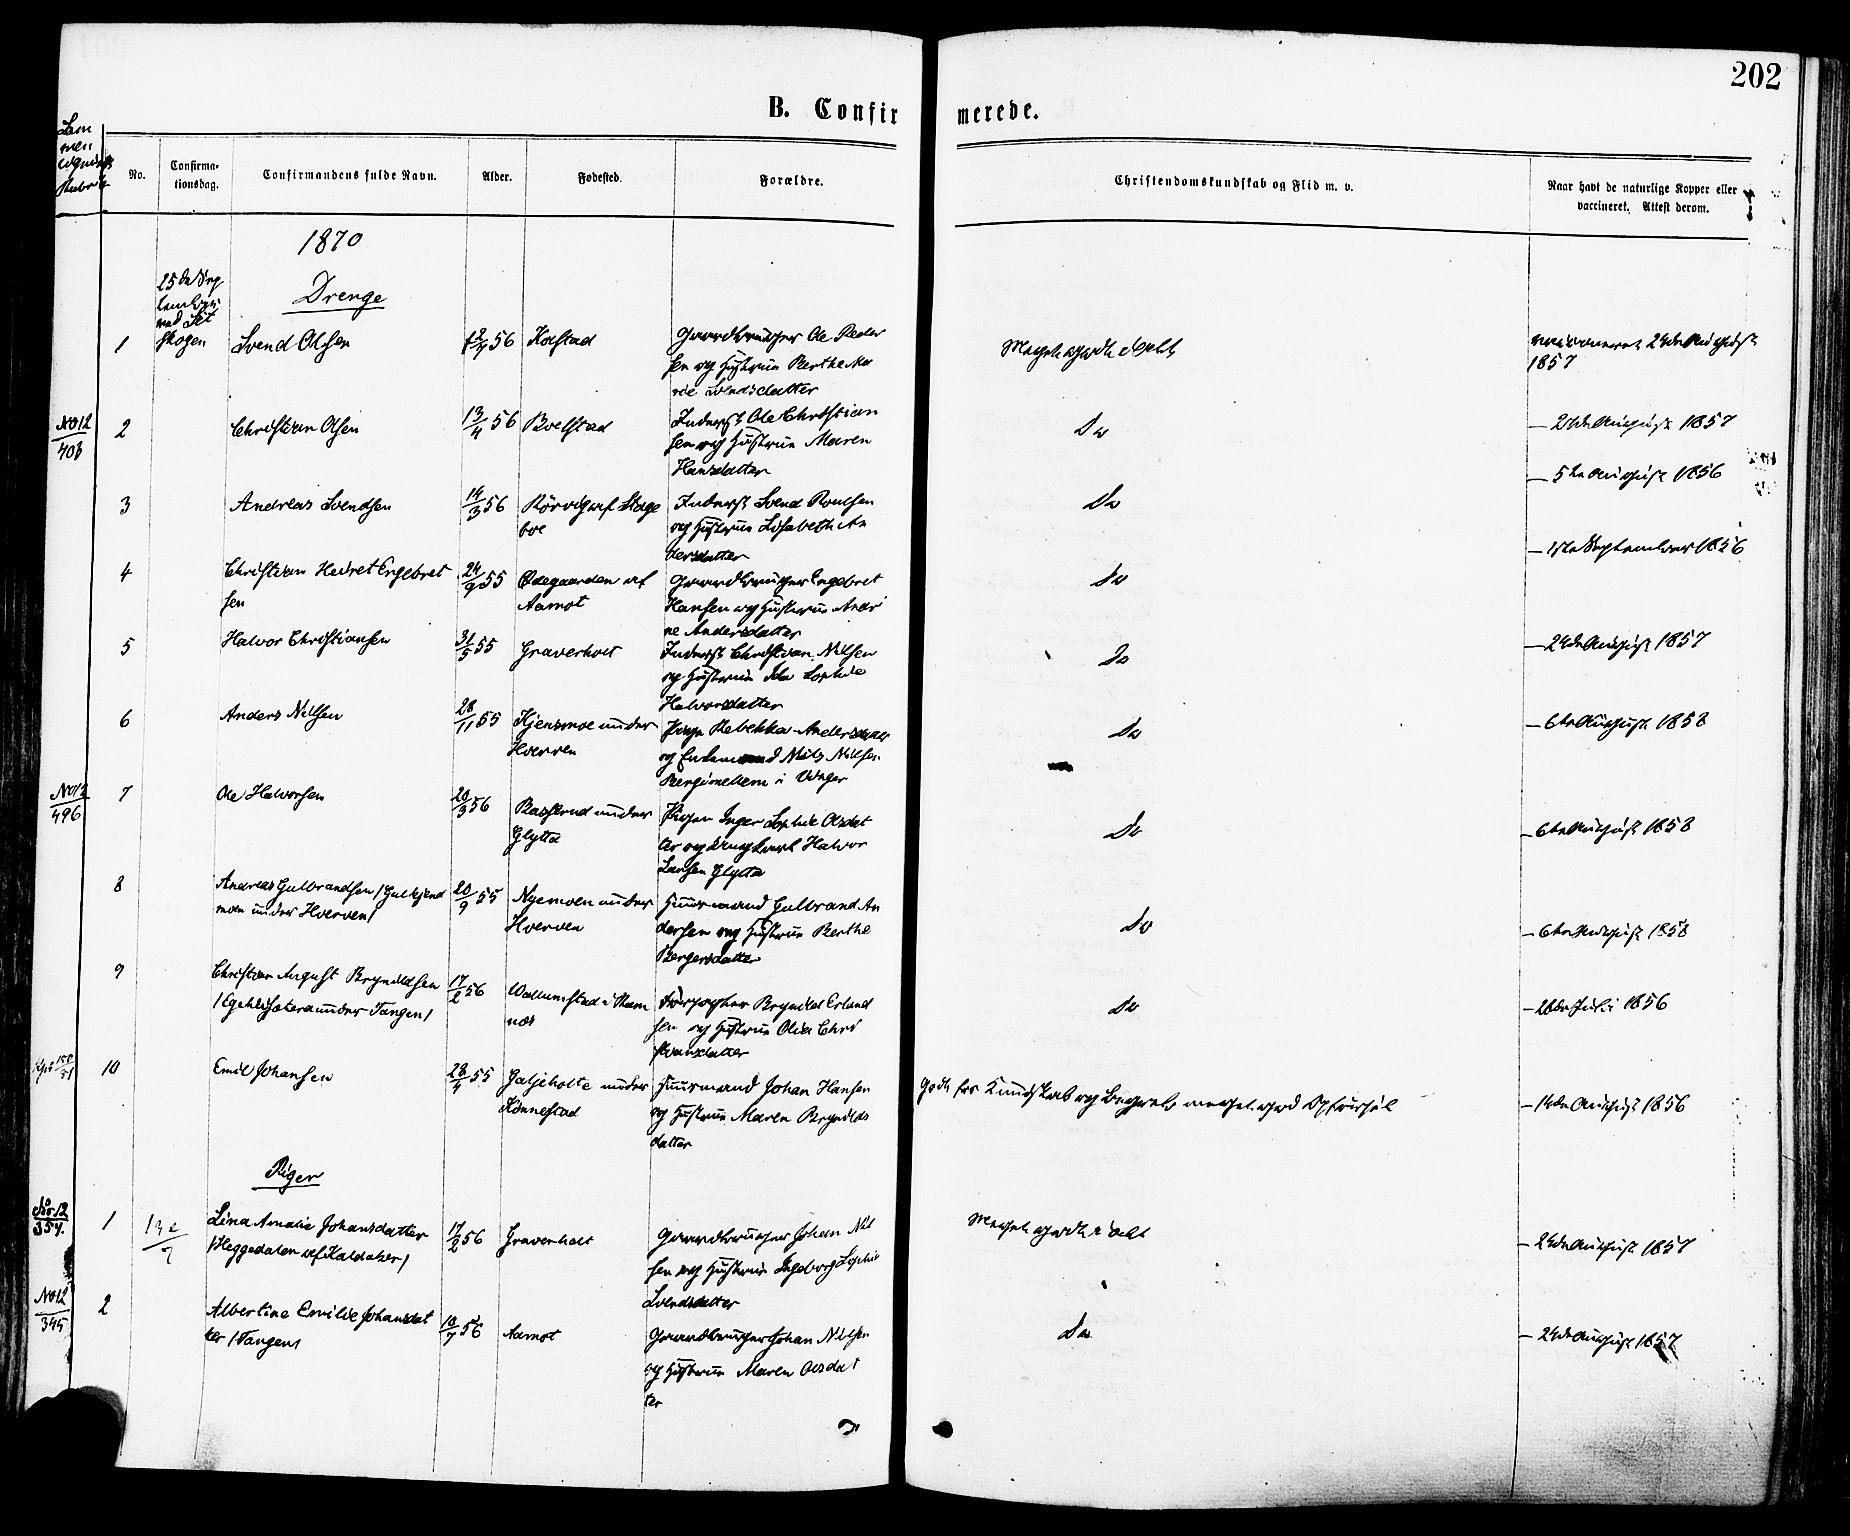 202
B. Confirmerede.
No.
Confirmationsdag.
Confirmandens fulde Navn.
Alder.
Fødested.
Forældre.
Christendomskundskab og Flid m. v.
Naar havt de naturlige Kopper eller
vaccineret. Attest derom.
1870
Drenge
25de Sep
tember
ved Set
skogen
1
Svend Olsen
56
Kolstad
Gaardbruger Ole Peder
sen og Hustrue Berthe Ma
rie Svendsdatter
Meget godt
vaccineret 24de August
1857
No 12
408
2
Christian Olsen
13/4 56
Boelstad
Inderst Ole Christian
sen og Hustrue Maren
Hansdatter
Do
— 24de August 1857
3
Andreas Svendsen
14/3 56
Rörvig af Stage
boe
Inderst Svend Poulsen
og Hustrue Lisabeth An
dersdatter
Do
— 5te August 1856
4
Christian Hedret Engebret
sen
24/9 55
Ödegaarden af
Aamot
Gaardbruger Engebret
Hansen og Hustrue Andri
ne Andersdatter
Do
— September 1856
5
Halvor Christiansen
31/5 55
Graverholt
Inderst Christian Nilsen
og Hustrue Ida Sophie
Halvorsdatter
Do
— 24de August 1857
6
Anders Nilsen
28/11 55
Kjensmoe under
Hverven
Pige Rebekka Andersdatter
og Enkemand Nils Nilsen
i Vinger
Do
— 6te August 1858
No 12
496
7
Ole Halvorsen
20/3 56
Basserud under
Glytta
Pigen Inger Sophie Olsdat
ter og Ungkarl Halvor
Larsen Glytta
Do
— 6te August 1858
8
Andreas Gulbrandsen /
moen under Hverven/
20/9 55
Nyemoen under
Hverven
Huusmand Gulbrand An
dersen og Hustrue Berthe
Bergersdatter
Do
— 6te August 1858
9
Christian August Brynildsen
under Tangen/
17/2 56
i Ram
næs
Brynild Erland
sen og Hustrue Olia Chri
stiansdatter
Do
— Juli 1856
10
Emil Johansen
28/4 55
Galjeholte under
Kinnestad
Huusmand Johan Hansen
og Hustrue Maren Brynilds
datter
Godt for Kundskab og meget god Opførsel
— 14de August 1856
Piger
No 12
354.
1
Lina Amalie Johansdatter
/Heggedalen af Kaldaker/
17/2 56
Graverholt
Gaardbruger Johan Nil
sen og Hustrue Ingeborg Sophie
Svendsdatter
Meget godt
— 24de August 1857
No 12
345
2
Albertine Emilie Johansdat
ter /Tangen/
10/7 56
Aamot
Gaardbruger Johan Nilsen
og Hustrue Maren Olsdat
ter
Do
— 24de August 1857